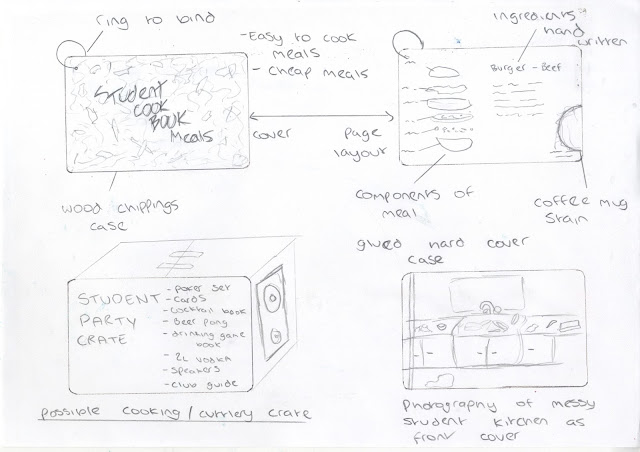 ring to bind
-Easy to cook
meals
- cheap meals
ingredients
hand
written
Student
COOK
BOOK
Meals
Burger - Beef
cover
page
layout
wood chippings
case
components of
meal
coffee mug
stain
glued hard cover
case
STUDENT
PARTY
CRATE
- Poker set
- cards
- cocktail book
- Beer pong
- drinking game
book
- 2L vodka
- speakers
- club guide
possible cooking / cutlery crate
Photography of messy
student kitchen as
front cover